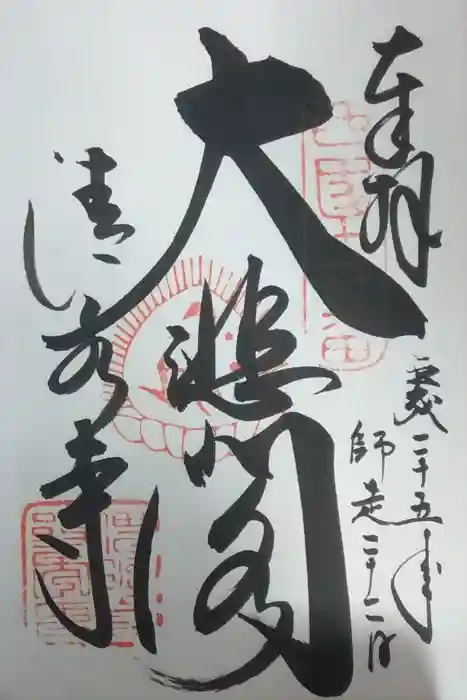 奉拝
平成二十五年
師走二十二日
大悲閣
清水寺